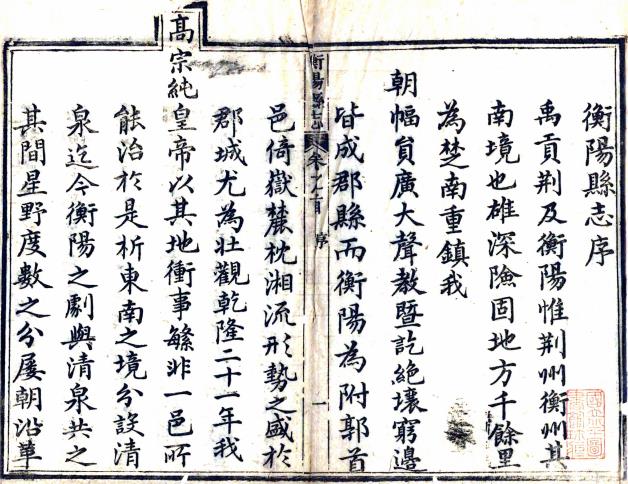 衡陽縣志序
禹貢荆及衡陽惟荆州衡州其
南境也雄深險固地方千餘里
為楚南重鎮我
朝幅員廣大聲教曁訖絶壤窮邊
皆成郡縣而衡陽為附郭首
衡陽縣志 卷之首 序 一
邑倚嶽麓枕湘流形勢之盛於
郡城尤為壯觀乾隆二十一年我
高宗純皇帝以其地衝事繁非一邑所
能治於是析東南之境分設清
泉迄今衡陽之劇與清泉共之
其間星野度數之分屢朝沿革